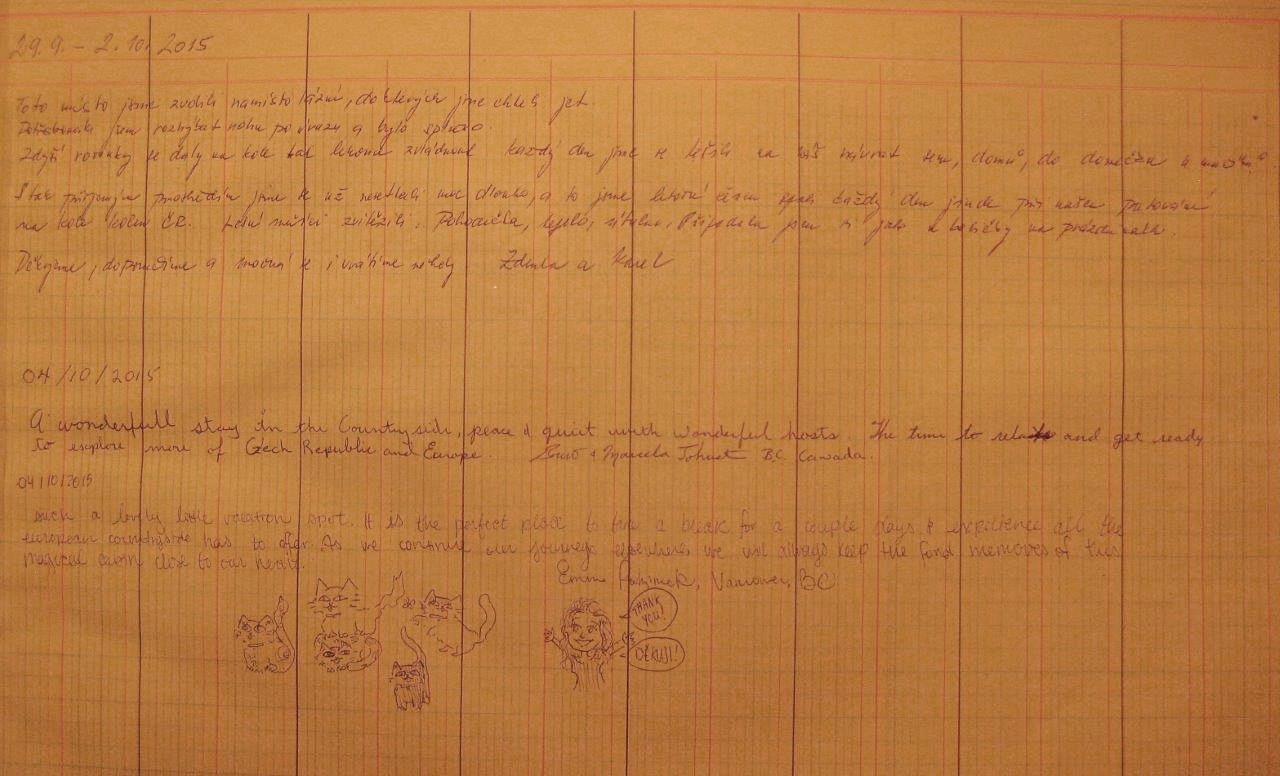 29.9. – 2.10. 2015
Toto místo jsme zvolili namísto lázní, do kterých jsme chtěli jet.
jsem rozhýbat nohu po úrazu a bylo
Zdejší rovinky se daly na kole tak lehounce zvládnout každý den jsme se těšili na náš návrat sem, domů, do domečku u
S tak příjemným prostředím jsme se už nesetkali moc dlouho, a to jsme letní časem každý den jinde při našem putování
na kole kolem ČR. Pohodička, teplo, útulno, Připadala jsem si jako u babičky na prázdninách.
Děkujeme, doporučíme a možná se i vrátíme někdy. Zdenka a Karel
04/10/2015
A wonderfull stay in the Countryside, peace & quiet with wonderful hosts. The time to relax and get ready
to explore more of Czech Republic and Europe. & Marcela B.C. Canada.
04/10/2015
such a lovely little vacation spot. It is the perfect place to take a break for a couple days & experience all the
european countryside has to offer. As we continue our journey elsewhere we will always keep the fond memories of this
magical cabin close to our heart.
Emma Vancouver, BC
THANK YOU!
DĚKUJI!